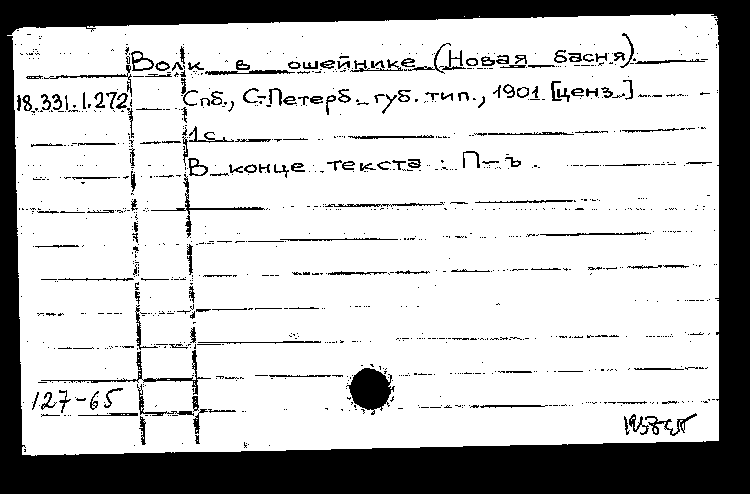 Волк в ошейнике (Новая басня).
18.331.1.272 Спб., С-Петерб. губ. тип., 1901 [ценз.]
1 с.
В конце текста: П-ъ.
127-65